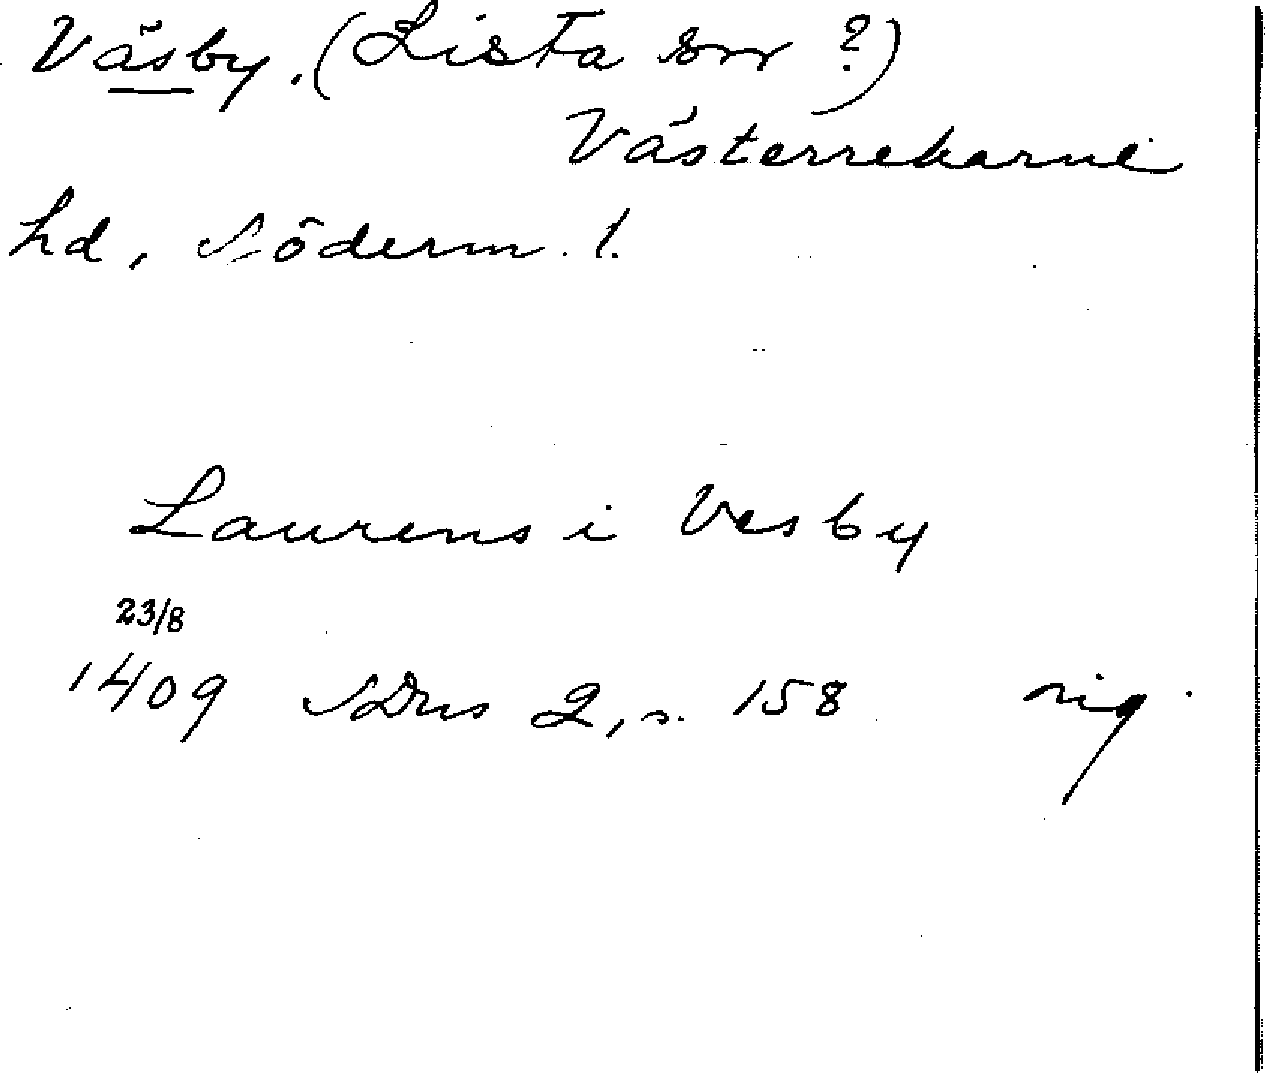 Väsby. (Lista sn ?)
Västerrekarne
hd, Söderm. l.
Laurens i Vesby
23/8
1409 SDns 2, s. 158 sig.